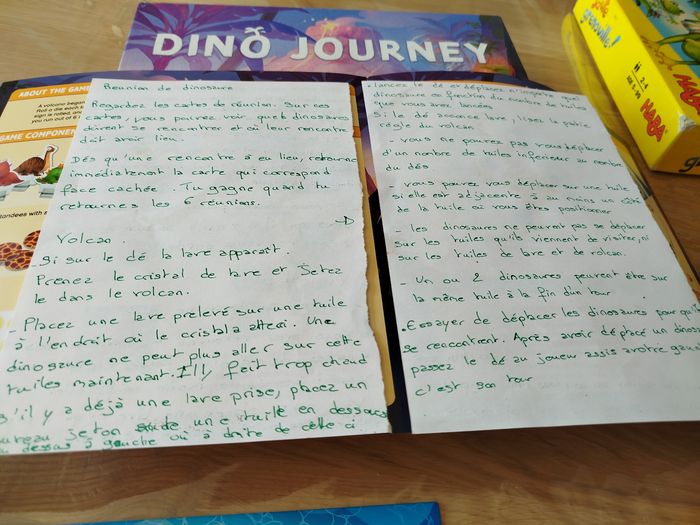 DINO JOURNEY
grenouille!
HABA
2-4
HABA
ABOUT THE GAME
A volcano began
Roll a die each
sign is rolled, and
you run out of 6
GAME COMPONEN
tandees with s
Réunion de dinosaure
Regardez les cartes de réunion. Sur ces
cartes, vous pouvez voir quels dinosaures
doivent se rencontrer et où leur rencontre
doit avoir lieu.
Dès qu'une rencontre à eu lieu, retourne
immédiatement la carte qui correspond
face cachée. Tu gagne quand tu
retournes les 6 réunions.
Volcan.
- Si sur le dé la lave apparait.
Prenez le cristal de lave et Jetez
le dans le volcan.
- Placez une lave prelevé sur une tuile
à l'endroit où le cristal a atteri. Une
dinosaure ne peut plus aller sur cette
tuiles maintenant. Il y fait trop chaud
s'il y a déjà une lave prise, placez un
nouveau jeton sur une tuile en dessous
au dessus à gauche où à droite de celle ci.
. lancez le dé et déplacez n'importe quel
dinosaure en fonction du nombre de tuile
que vous avez lancées
Si le dé annonce lave, lisez la
règle du volcan
- vous ne pouvez pas vous déplacer
d'un nombre de tuiles inférieur au nombre
du dés
- vous pouvez vous déplacer sur une tuile
si elle est adjacente à au moins un côté
de la tuile où vous êtes positionner
- les dinosaures ne peuvent pas se déplacer
sur les tuiles qu'ils viennent de visiter, ni
sur les tuiles de lave et de volcan.
- Un ou 2 dinosaures peuvent être sur
la même tuile à la fin d'un tour
. Essayer de déplacer les dinosaures pour qu'ils
se rencontrent. Après avoir déplacé un dinosa
passez le dé au joueur assis à votre gauche
c'est son tour